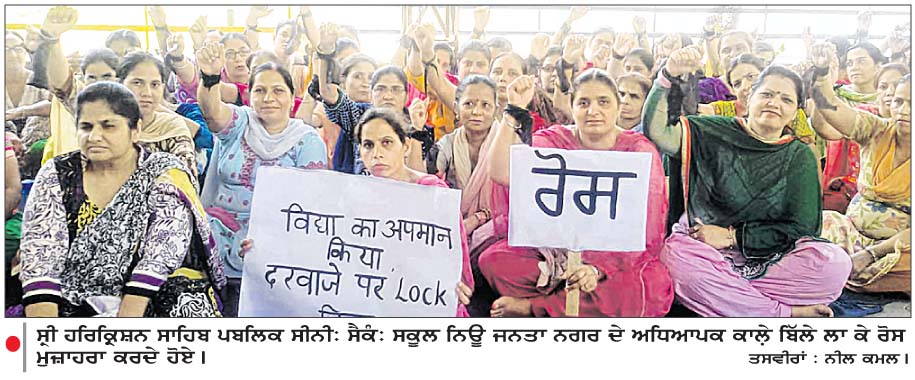 विद्या का अपमान
किया
दरवाजे पर Lock
ਰੋਸ
ਸ੍ਰੀ ਹਰਿਕ੍ਰਿਸ਼ਨ ਸਾਹਿਬ ਪਬਲਿਕ ਸੀਨੀ: ਸੈਕੰ: ਸਕੂਲ ਨਿਊ ਜਨਤਾ ਨਗਰ ਦੇ ਅਧਿਆਪਕ ਕਾਲ਼ੇ ਬਿੱਲੇ ਲਾ ਕੇ ਰੋਸ
ਮੁਜ਼ਾਹਰਾ ਕਰਦੇ ਹੋਏ। ਤਸਵੀਰਾਂ : ਨੀਲ ਕਮਲ।